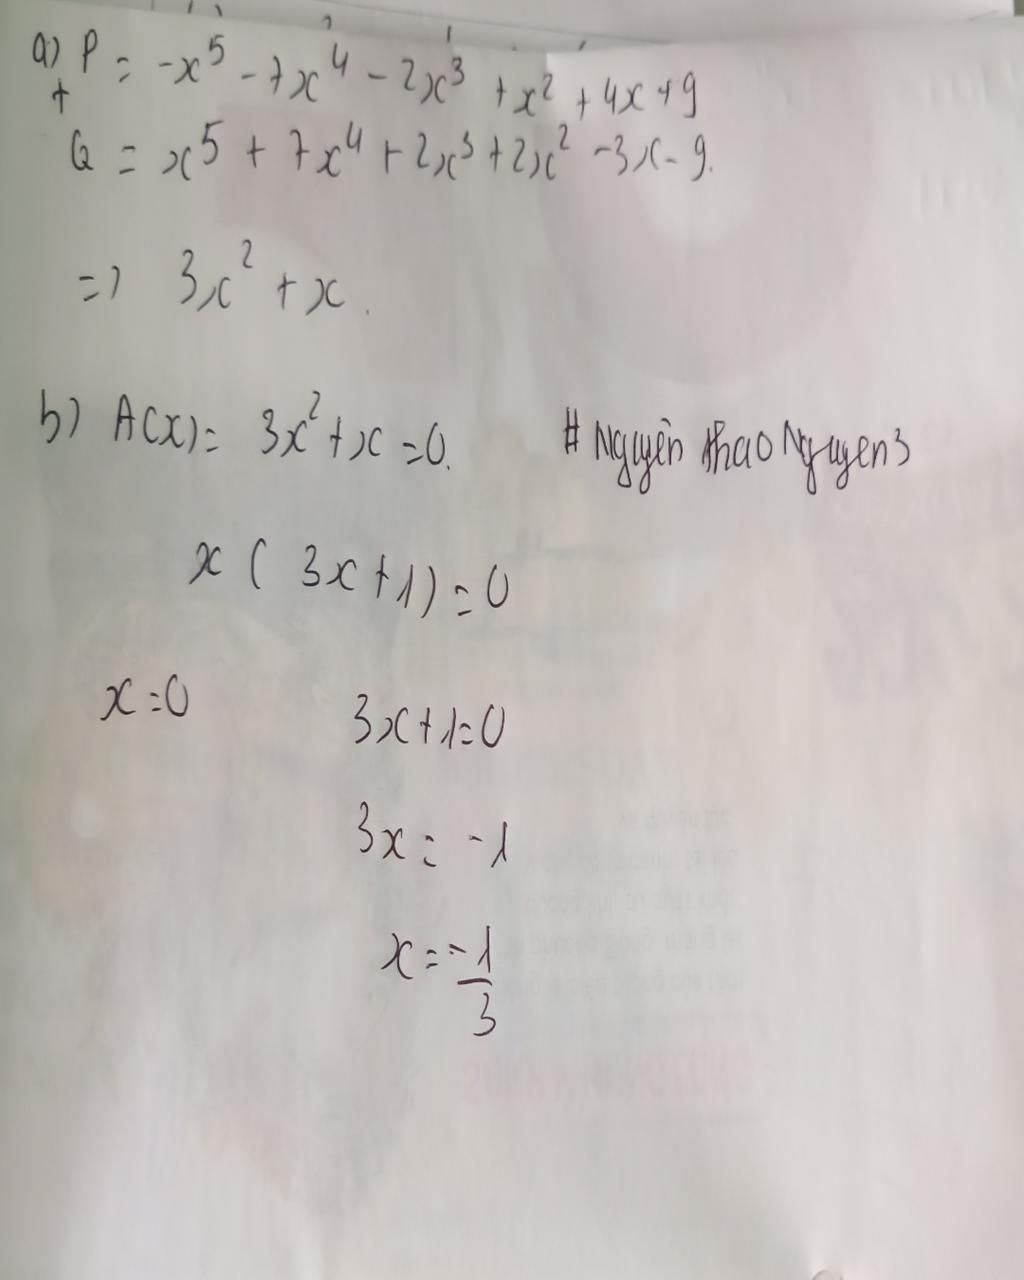 a) P = -x⁵ - 7x⁴ - 2x³ + x² + 4x + 9
+
Q = x⁵ + 7x⁴ + 2x³ + 2x² - 3x - 9.
=> 3x² + x.
b) A(x) = 3x² + x = 0. # Nguyên thao Nguyen3
x ( 3x + 1) = 0
x = 0 3x + 1 = 0
3x = -1
x = -1/3